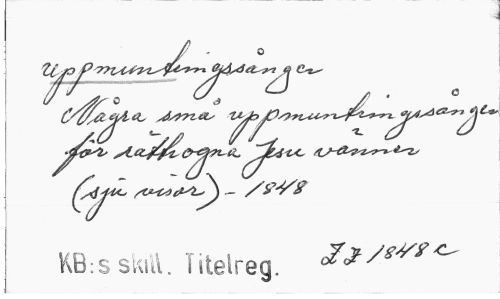 uppmuntringssånger
Några små uppmuntringssånger
för räthogna Jesu vänner
(sju visor) - 1848
KB:s skill. Titelreg.
ZZ 1848 c